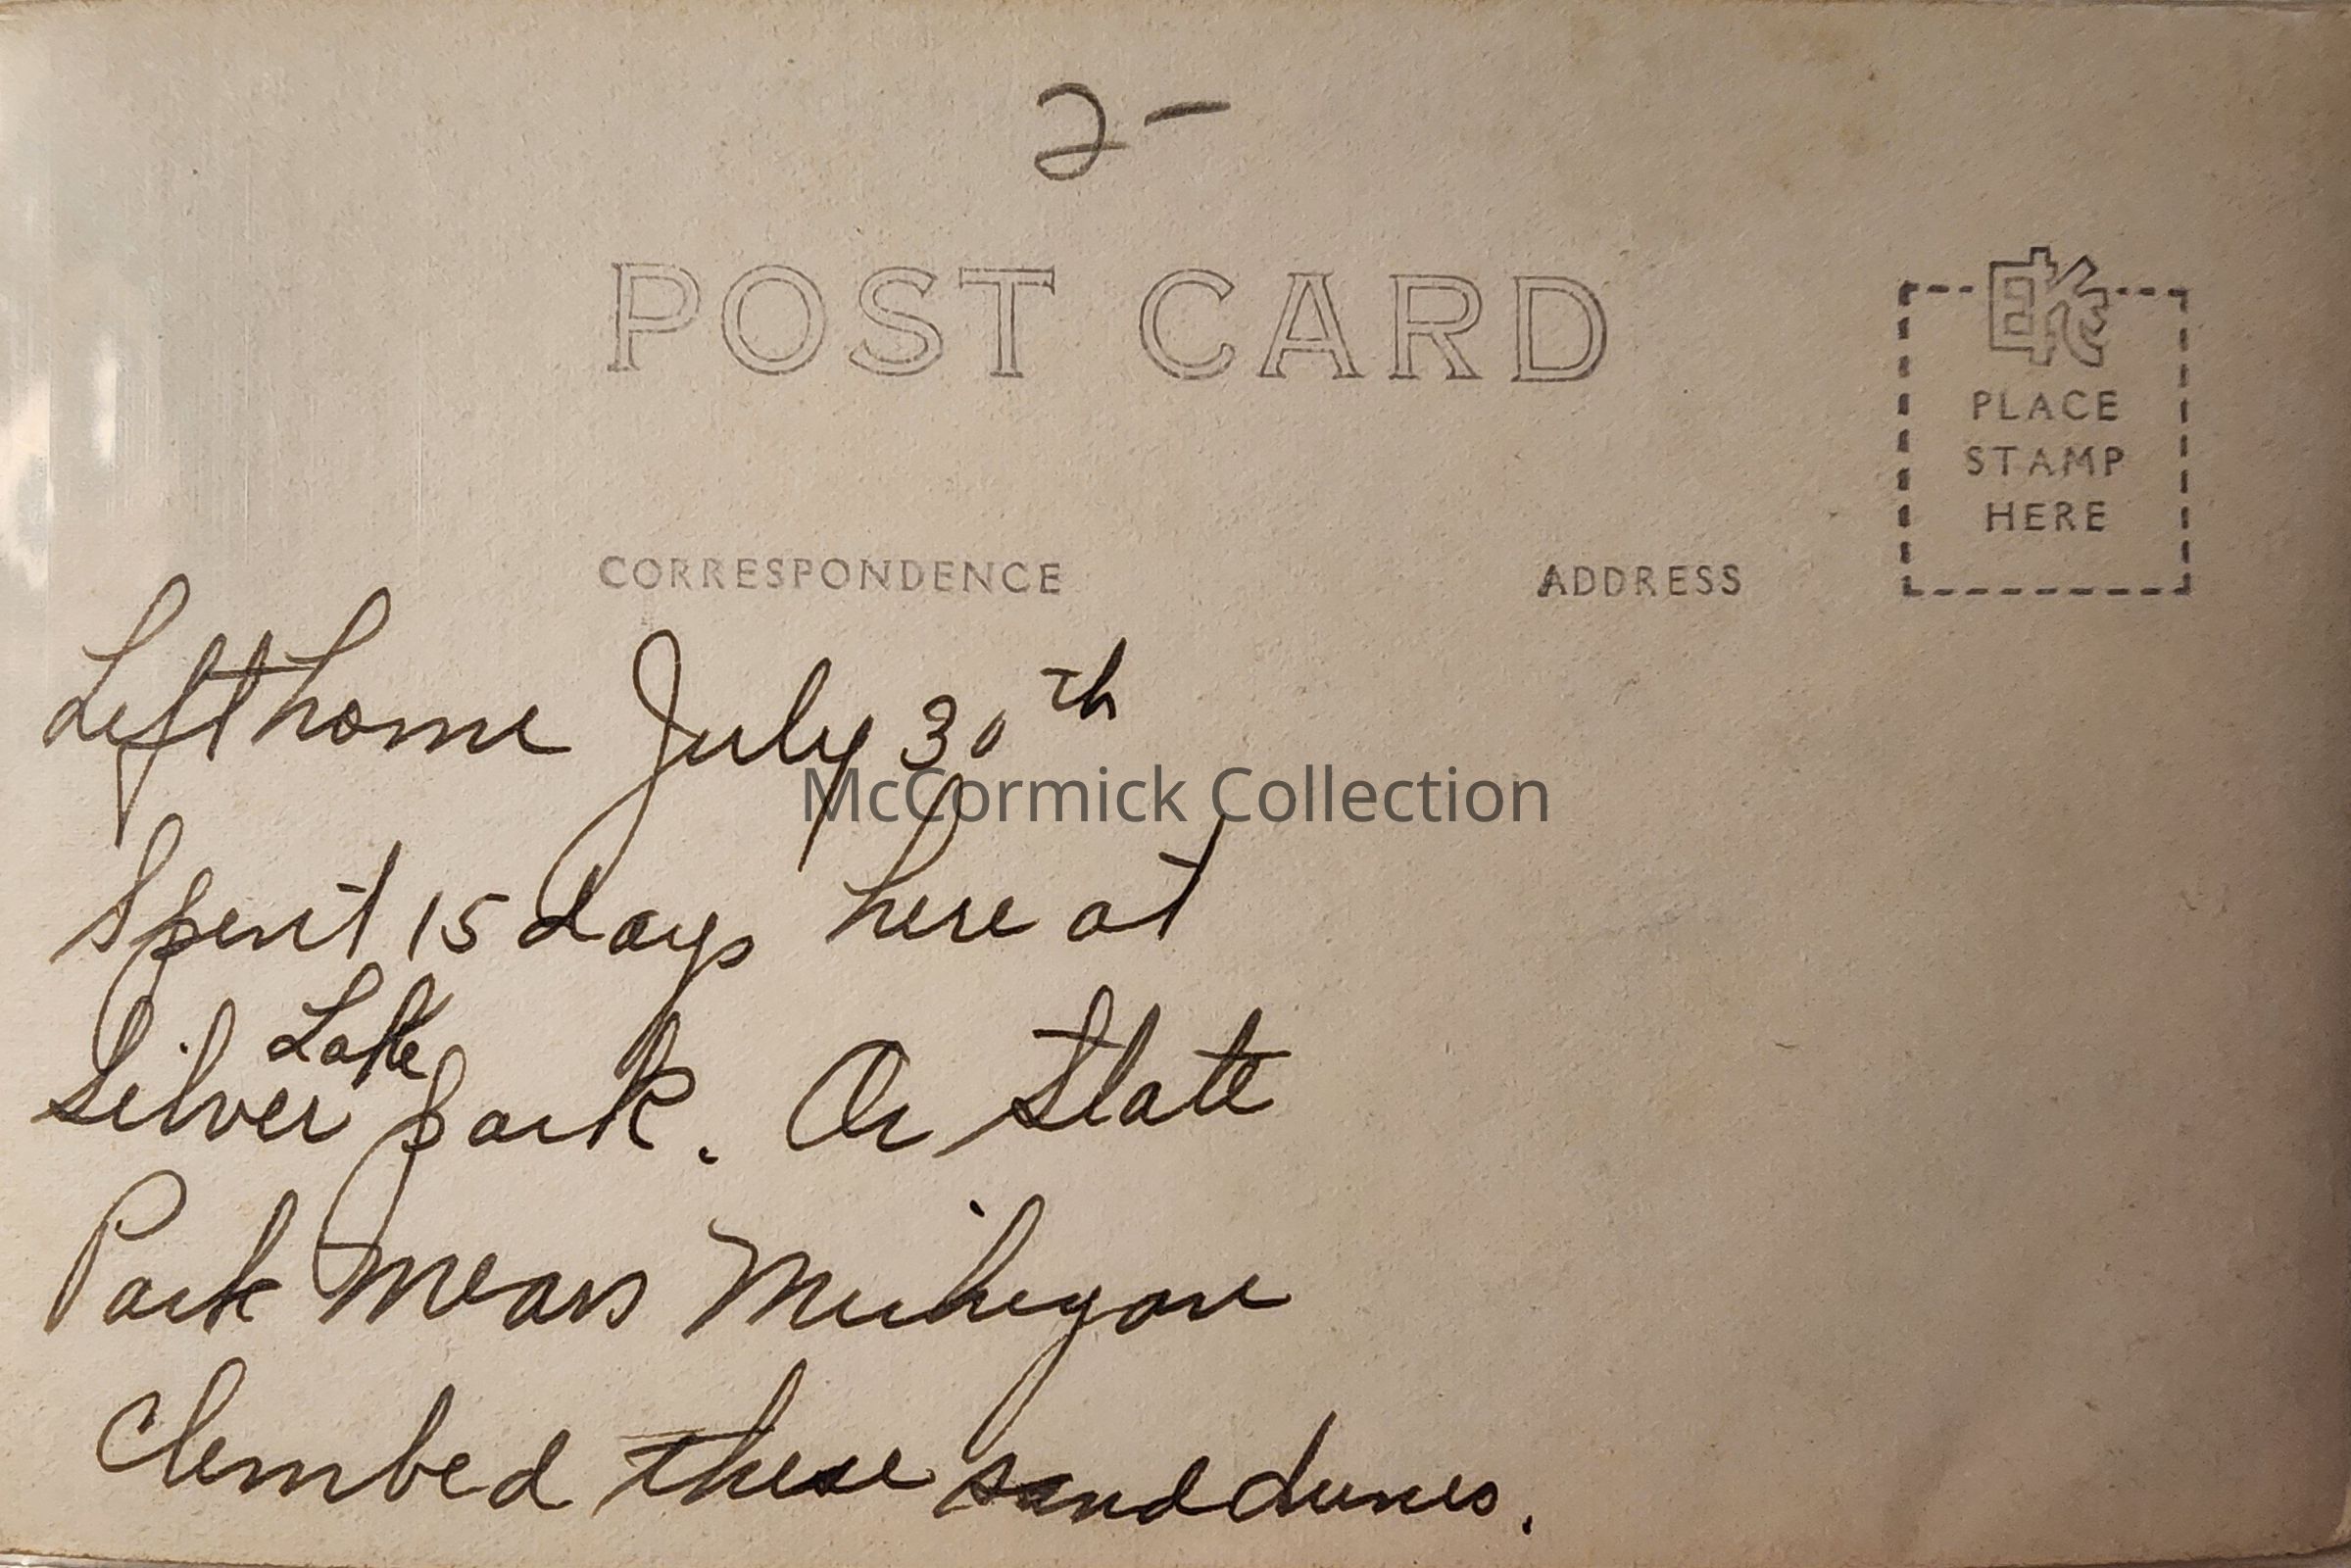 2-
POST CARD
EKC
PLACE
STAMP
HERE
CORRESPONDENCE
ADDRESS
Left home July 30th
McCormick Collection
Spent 15 days here at
Silver Lake park. Or State
Park Mears Michigan
Clembed these sand dunes.